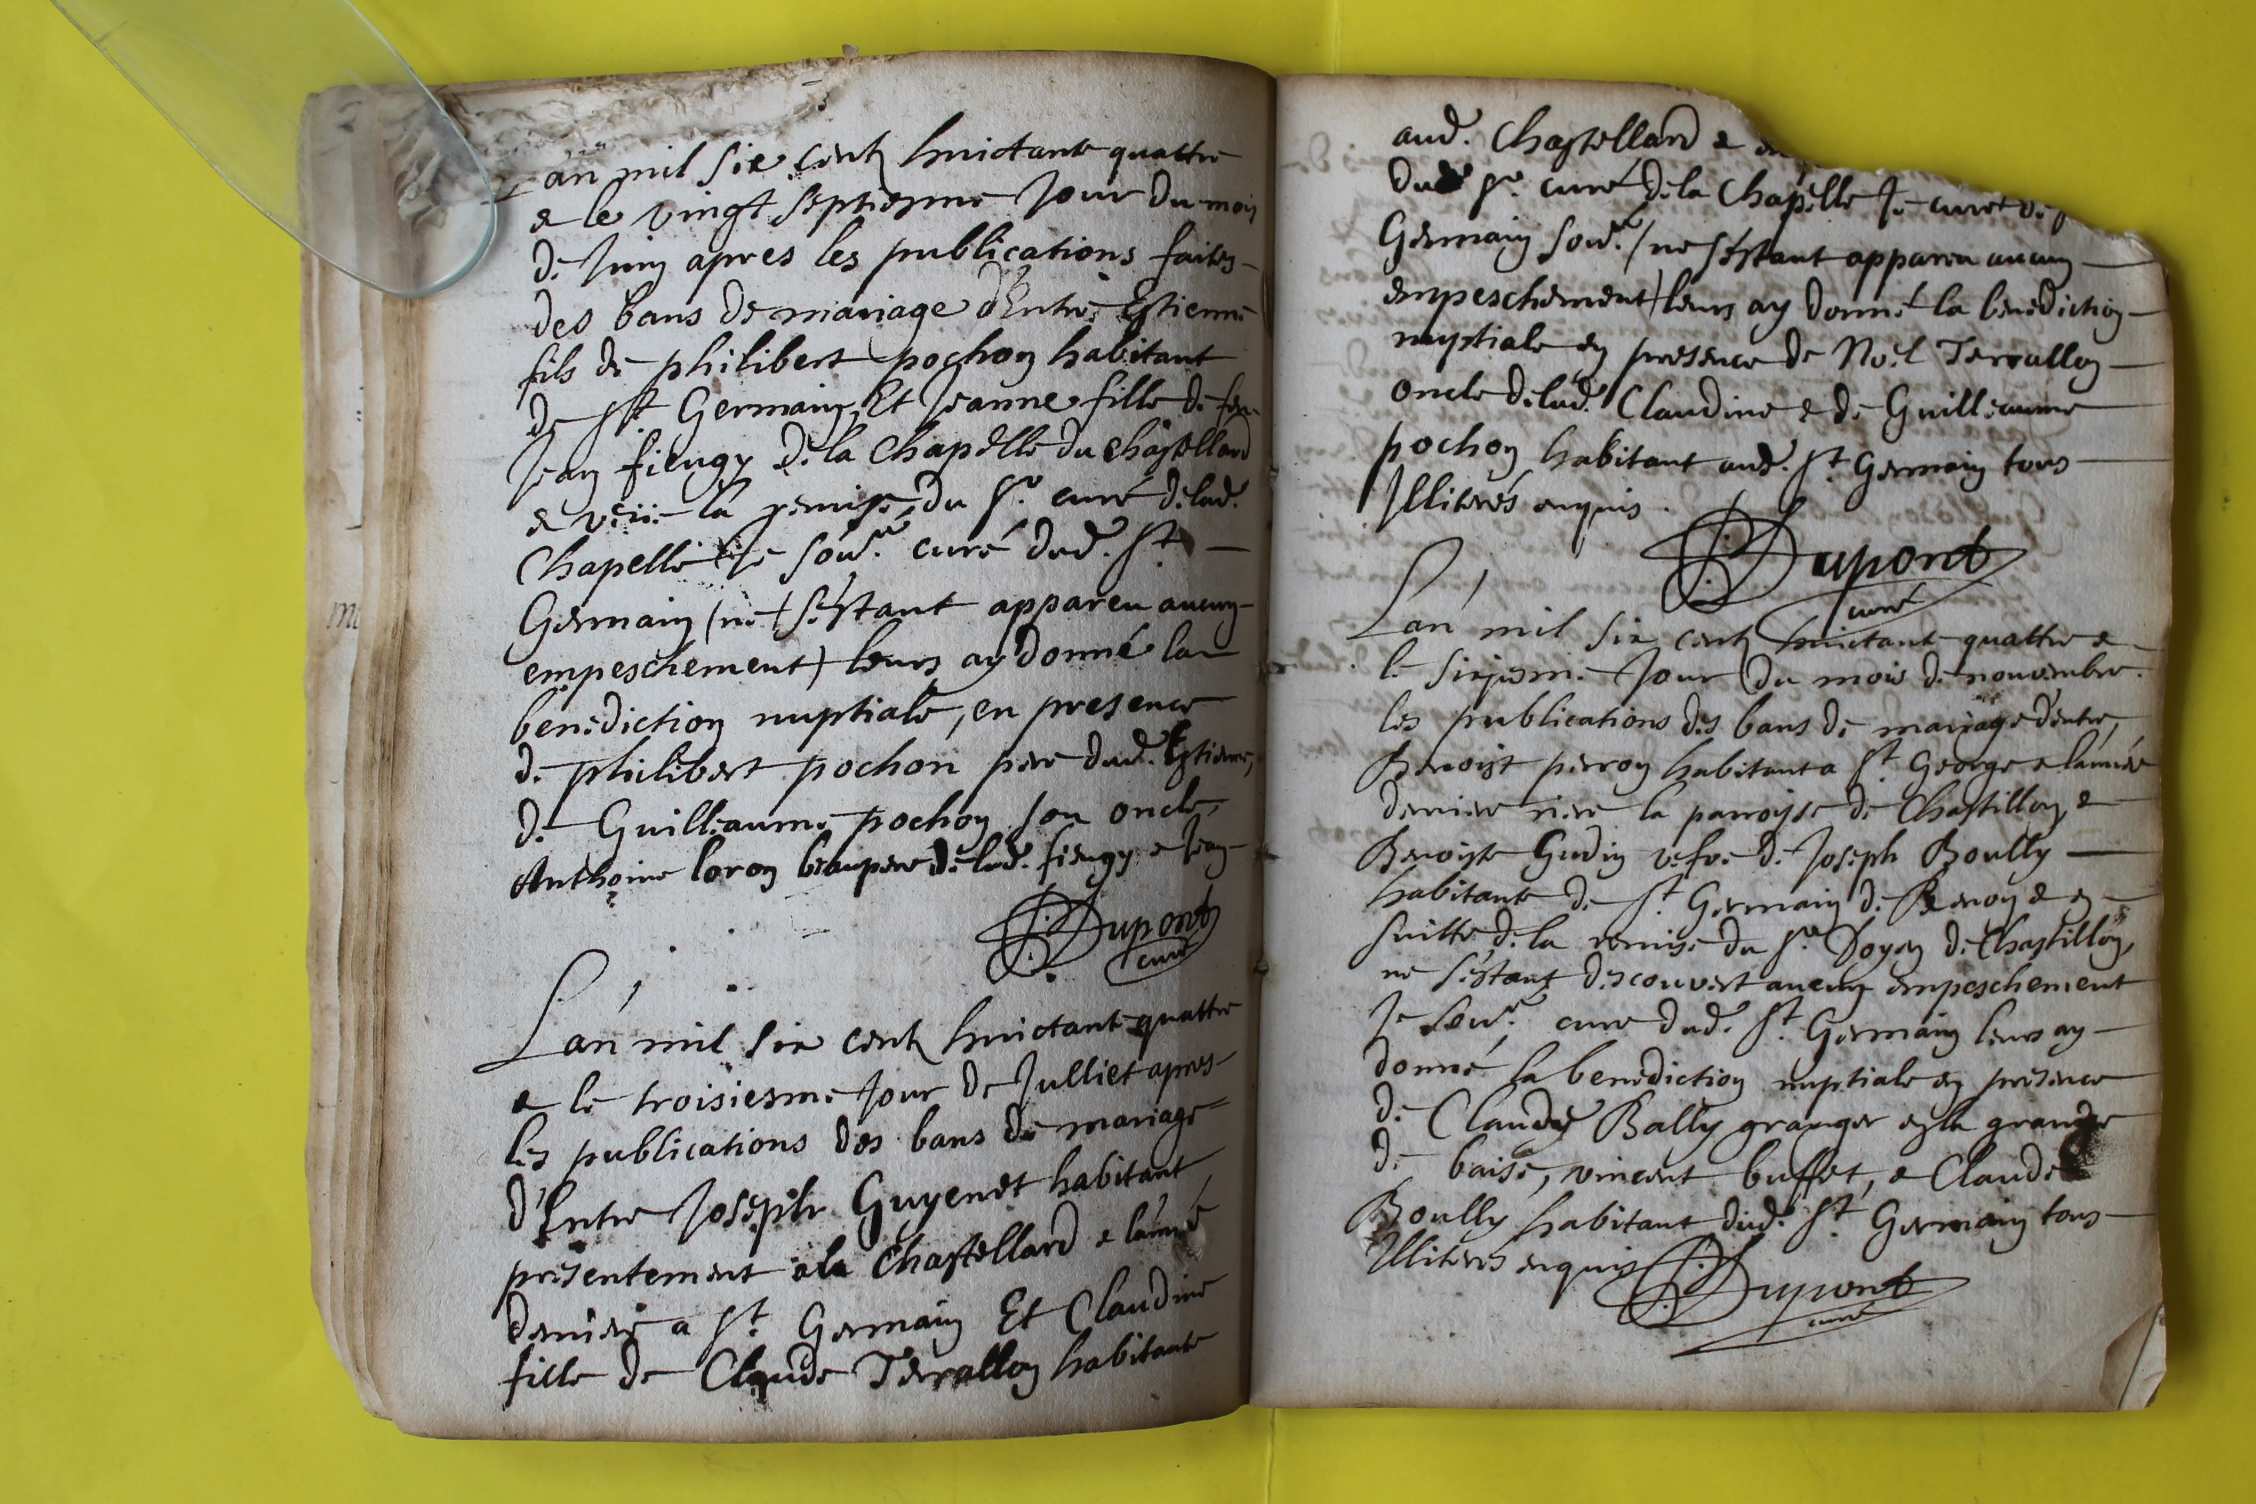 Lan mil six centz huictante quattre
& le vingt septiesme Jour du mois
de Juin apres les publications faites
des bans de mariage d'Entre Estienne
fils de philibert pochon habitant
de St Germain, Et Jeanne fille de feu
Jean fieugy de la Chapelle du Chastellard
& veüe la remise du Sr. curé de lad.
Chapelle Je sousé. curé dud. St
Germain (ne s'éstant appareu aucun
empeschement) leurs ay donné la
benediction nuptiale, en presence
de philibert pochon pere dud. Estienne,
de Guilleaume pochon son oncle,
Anthoine loron beaupere de lad. fieugy & Jean
Dupont
curé
L'an mil six centz huictante quattre
& le troisiesme Jour de Julliet apres
les publications des bans de mariage
d'Entre Joseph Guyenet habitant
presentement a la Chastellard & l'année
derniere a St. Germain Et Claudine
fille de Claude Terrallon habitante
aud. Chastellard &
dud. Sr. curé de la Chapelle Je curé de
Germain sousé. (ne s'éstant appareu aucun
empeschement) leurs ay donné la benediction
nuptiale en presence de Noel Terrallon
oncle de lad. Claudine & de Guilleaume
pochon habitant aud. St Germain tous
Illiterés enquis.
Dupont
curé
L'an mil six centz huictante quattre &
le sixiesme Jour du mois de novembre
les publications des bans de mariage d'entre
Benoist perron habitant a St George & l'année
derniere riere la parroisse de Chastillon &
Benoiste Gudin vefve de Joseph Boully
habitante de St. Germain de Renon & en
suitte de la remise du Sr. Doyen de Chastillon,
ne s'éstant descouvert aucun empeschement
Je sousé. curé dud. St Germain leurs ay
donné la benediction nuptiale en presence
de Claude Bally granger en la grange
de baise, vincent buffet, & Claude
Boully habitant dud. St Germain tous
Illiterés enquis
Dupont
curé